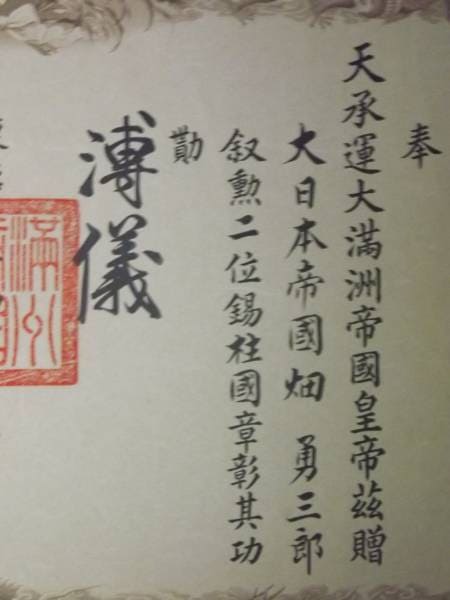 奉
天承運大滿洲帝國皇帝茲贈
大日本帝國畑 勇三郎
叙勲二位錫柱國章彰其功
勤
溥儀